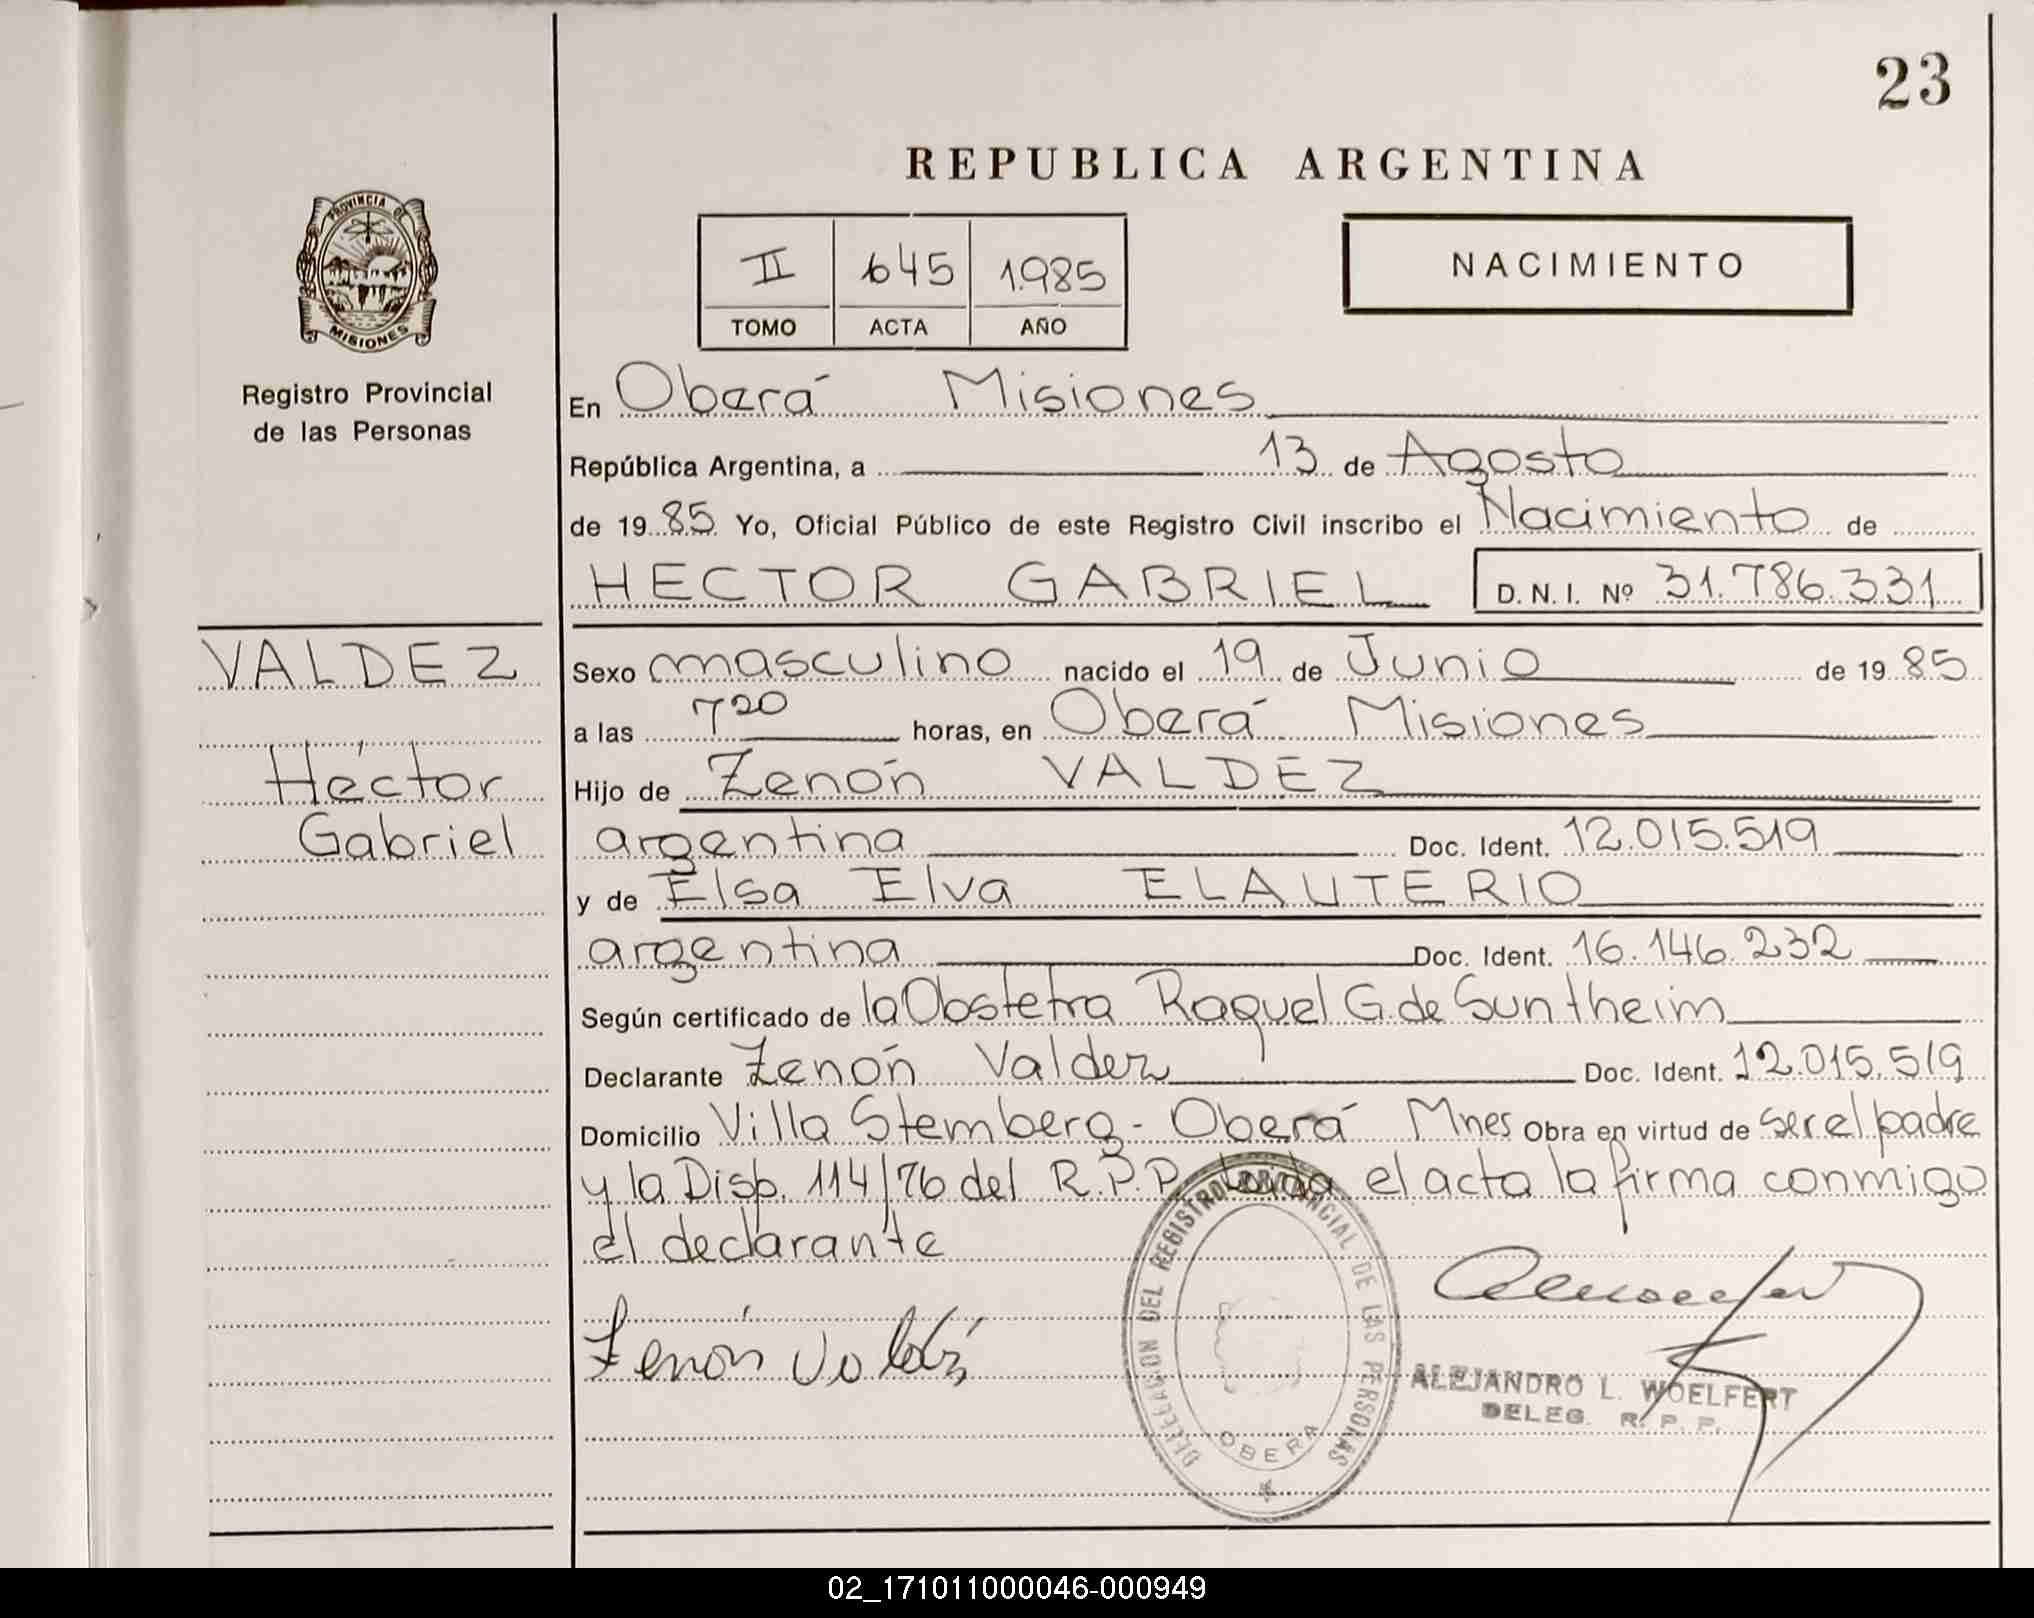 23
REPUBLICA ARGENTINA
PROVINCIA DE
MISIONES
Registro Provincial
de las Personas
II 645 1.985
TOMO ACTA AÑO
NACIMIENTO
En Oberá Misiones
República Argentina, a 13 de Agosto
de 19 85 Yo, Oficial Público de este Registro Civil inscribo el Nacimiento de
HECTOR GABRIEL D. N. I. Nº 31.786.331
VALDEZ
Héctor
Gabriel
Sexo masculino nacido el 19 de Junio de 19 85
a las 7 20 horas, en Oberá Misiones
Hijo de Zenón VALDEZ
argentina Doc. Ident. 12.015.519
y de Elsa Elva ELAUTERIO
argentina Doc. Ident. 16.146.232
Según certificado de la Obstetra Raquel G. de Suntheim
Declarante Zenón Valdez Doc. Ident. 12.015.519
Domicilio Villa Stemberg - Oberá Mnes Obra en virtud de ser el padre
y la Disp. 114/76 del R.P.P. Leída el acta la firma conmigo
el declarante
Zenón Valdéz
DELEGACION DEL REGISTRO PROVINCIAL DE LAS PERSONAS
OBERA
ALEJANDRO L. WOELFERT
DELEG. R. P. P.
02_171011000046-000949